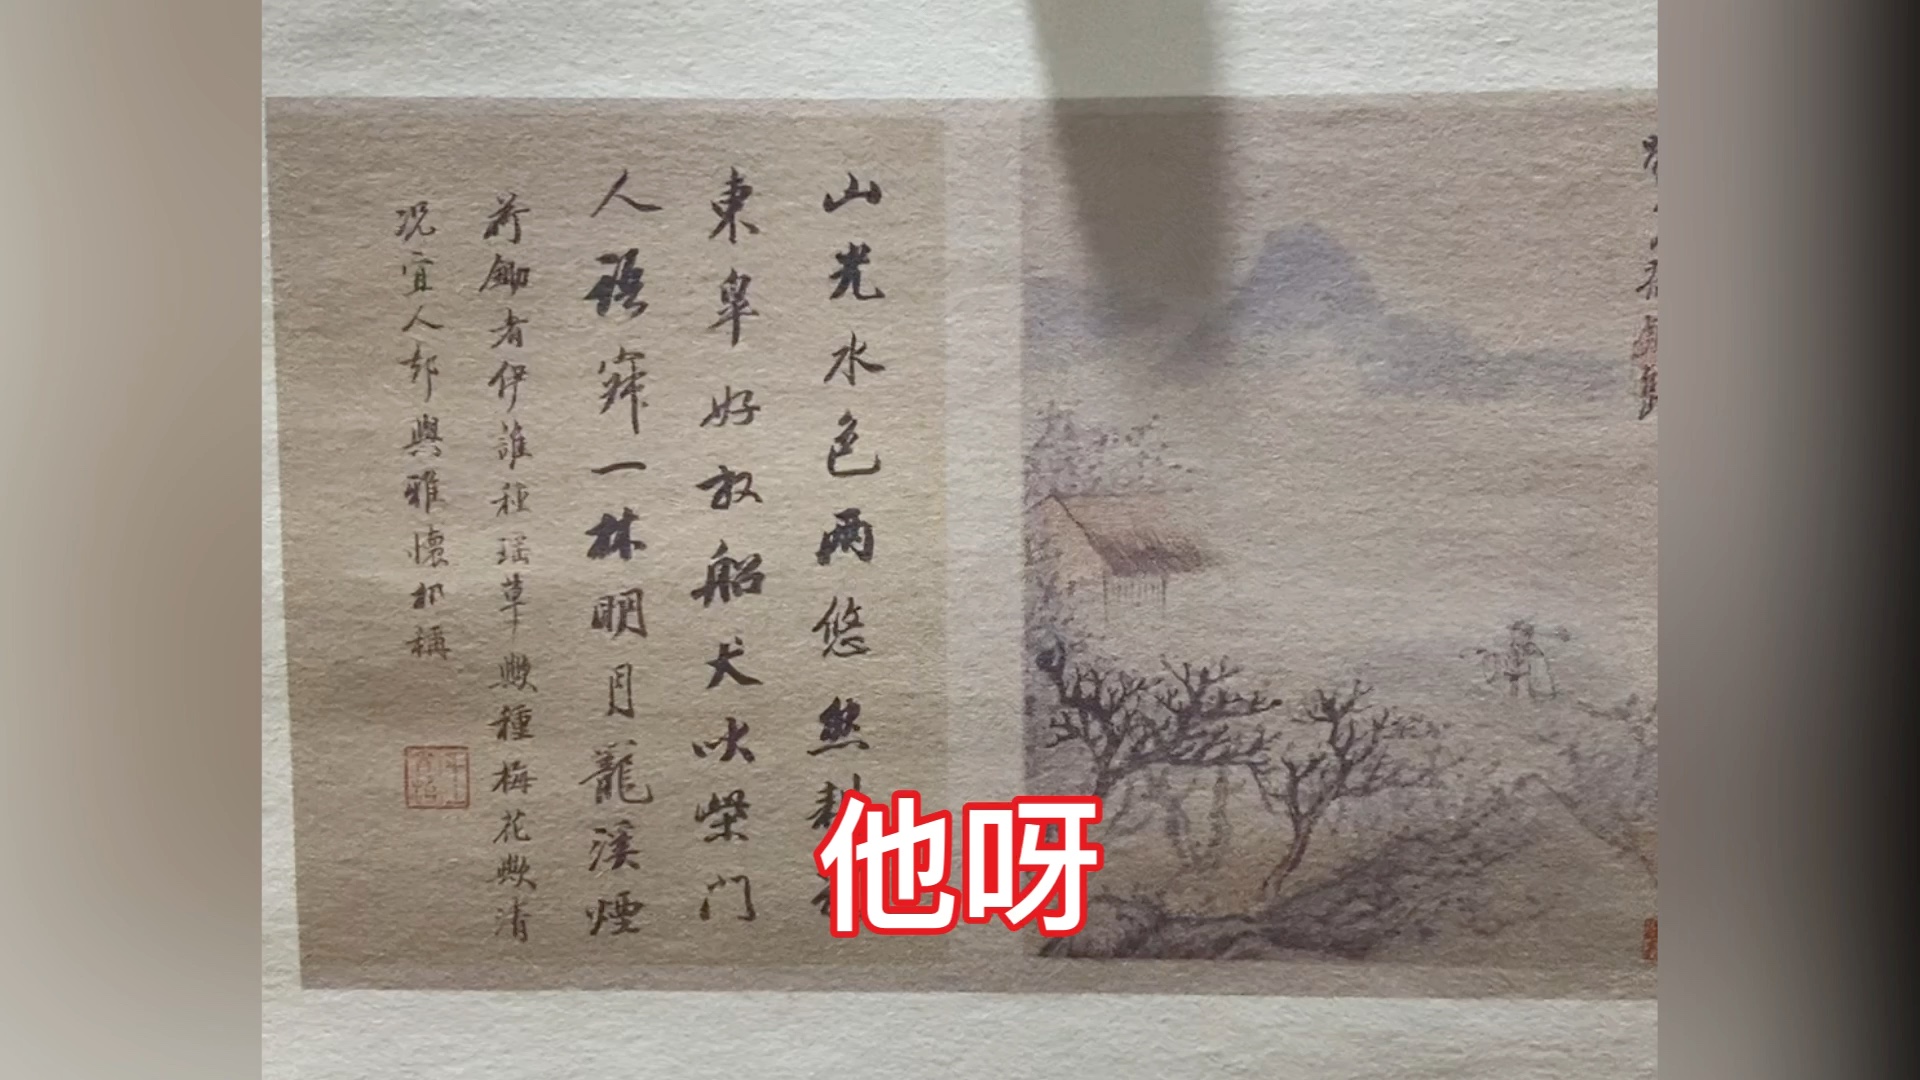 山光水色兩悠然
東皐好放船犬吠柴门
人語寂一林明月龍溪煙
荷鋤者伊誰種瑶草歟種梅花歟清
況宜人却與雅懷相稱
他呀